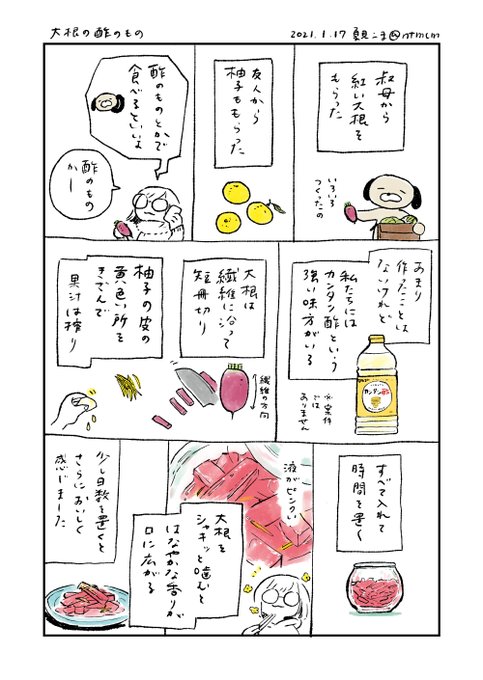 大根の酢のもの
2021.1.17
叔母から
紅い大根を
もらった
いろいろ
つくったの
友人から
柚子ももらった
酢のものとかで
食べるといいよ
酢のもの
かー
あまり
作ったことは
ないけれど
私たちには
カンタン酢という
強い味方がいる
カンタン酢
※案件
では
ありません
大根は
繊維に沿って
短冊切り
繊維の方向
柚子の皮の
黄色い所を
きざんで
果汁は搾り
すべて入れて
時間を置く
液がピンク!
大根を
シャキッと噛むと
はなやかな香りが
口に広がる
少し日数を置くと
さらにおいしく
感じました